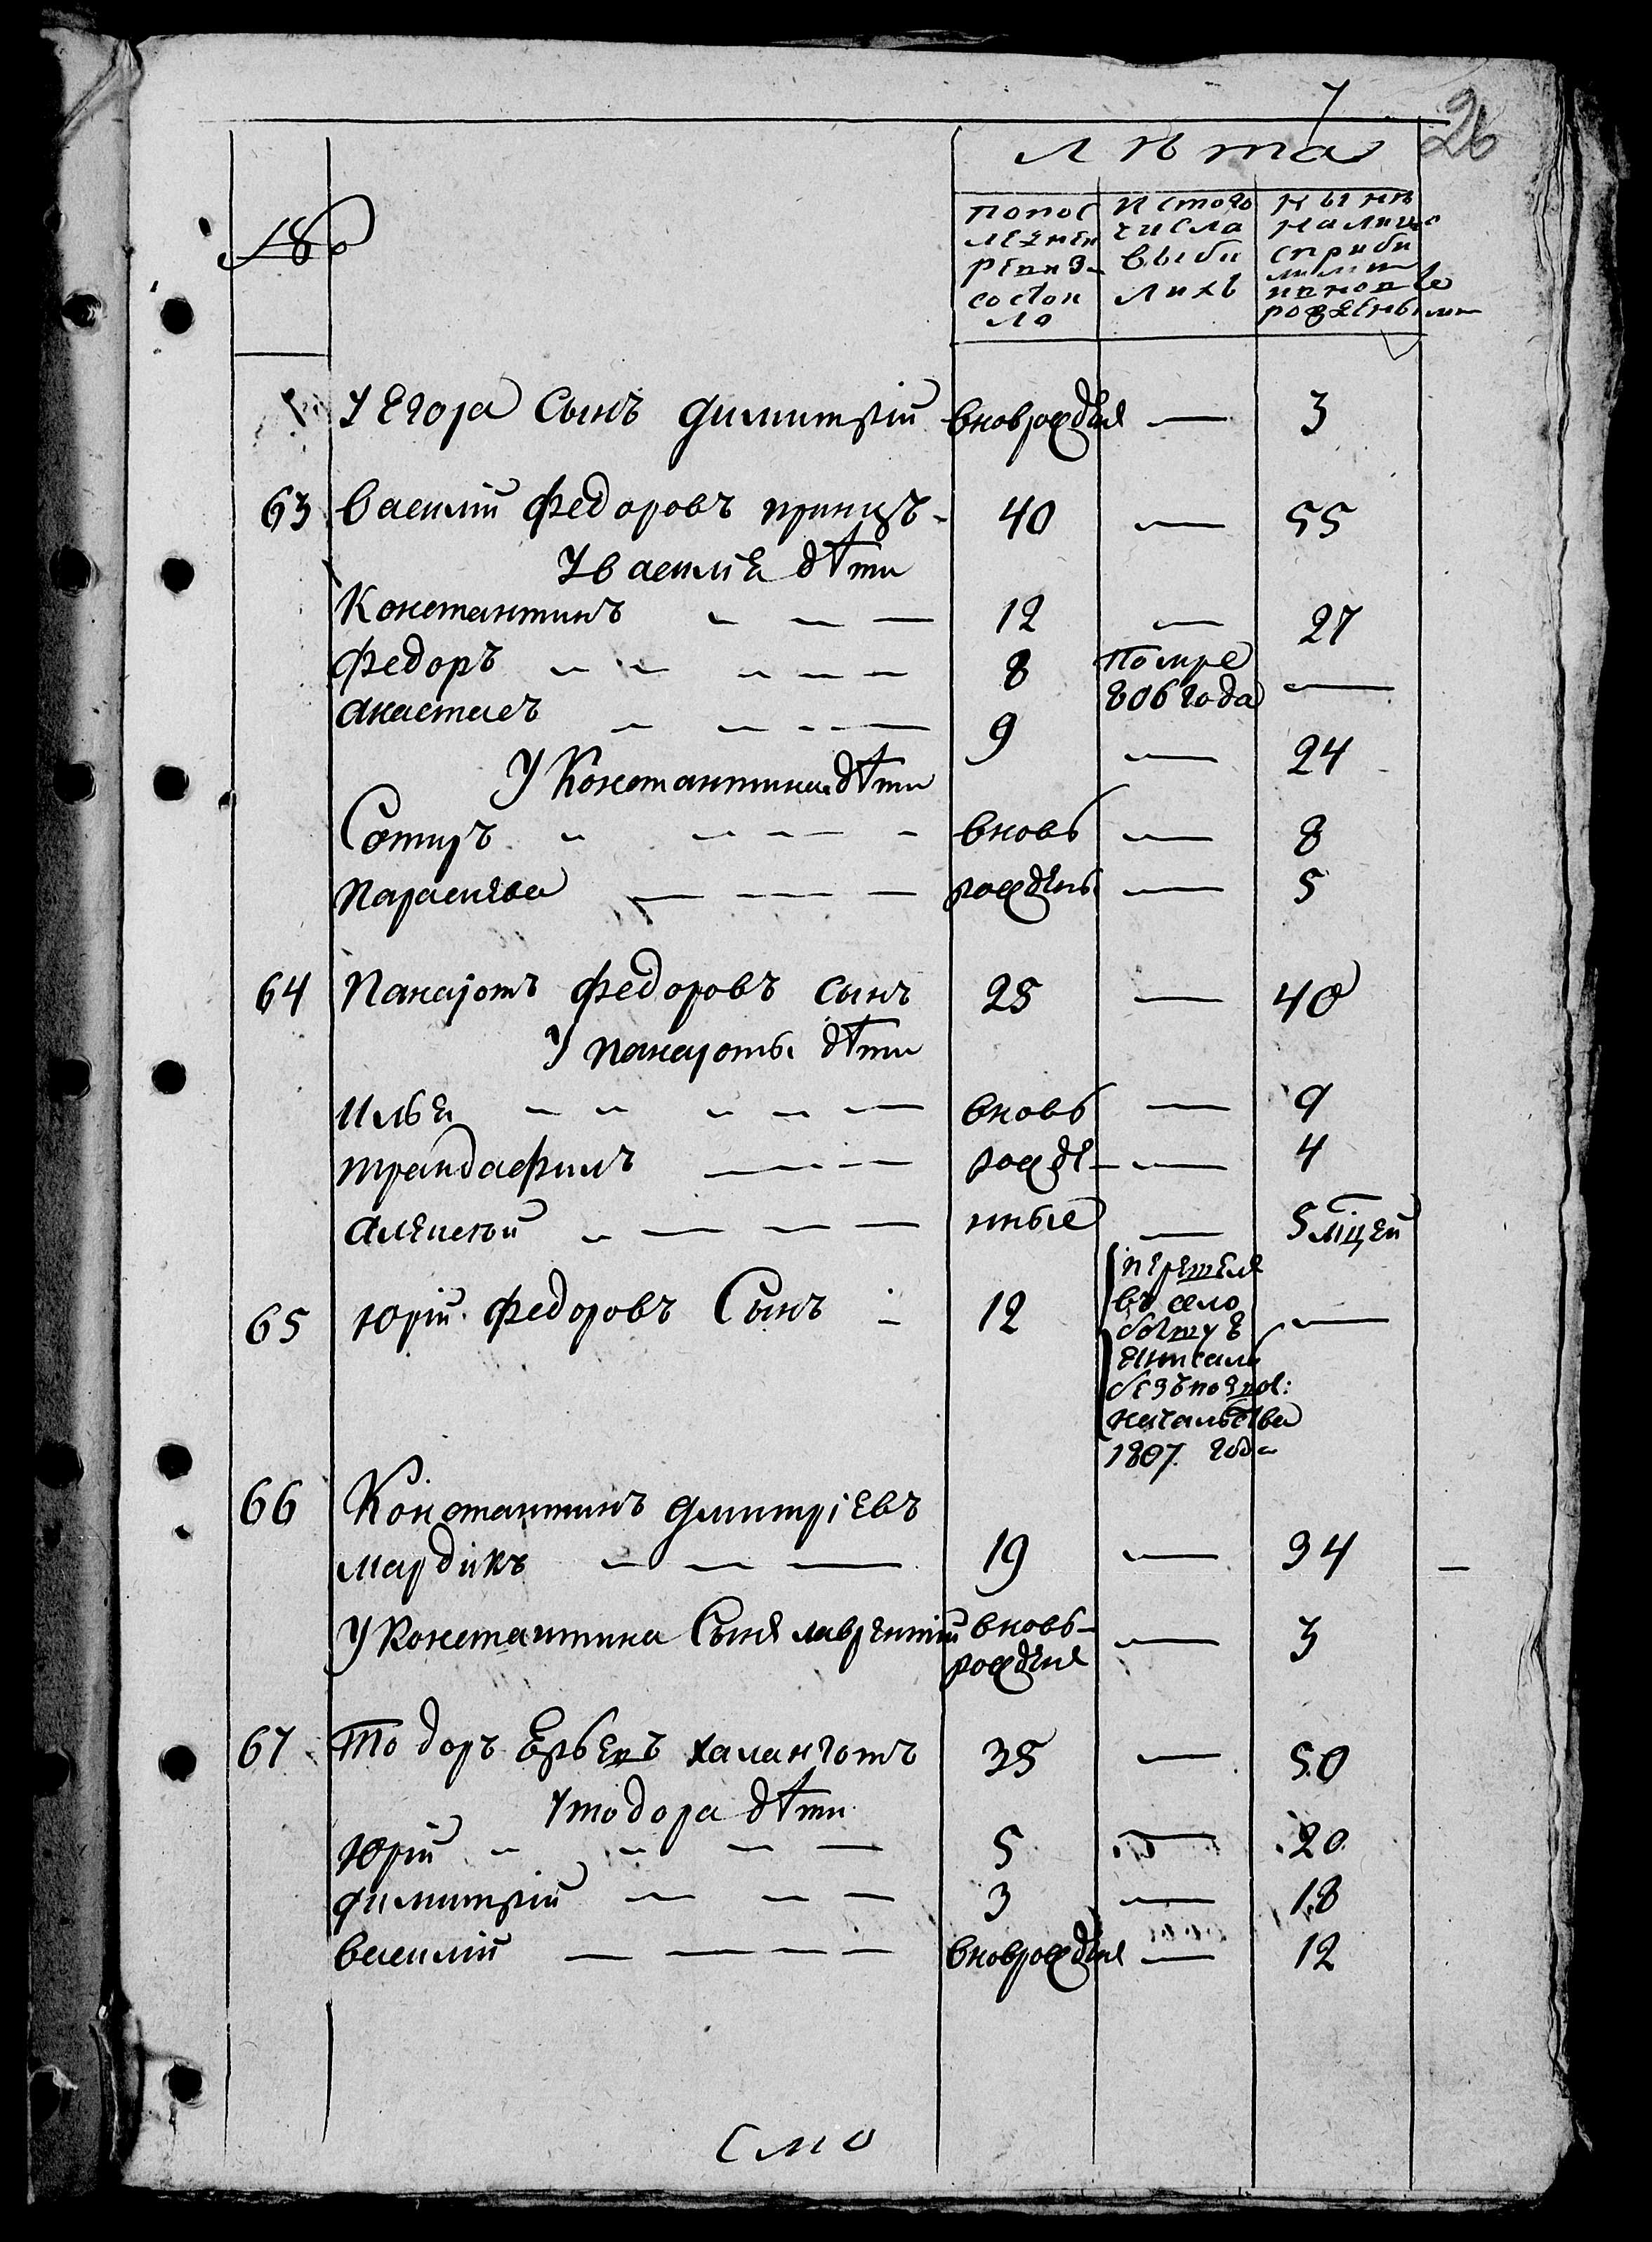 7
26
Лѣта
№
попос леднеи ревиз. состоя ло
ис того числа выбы лихъ
нынѣ на лицо с прибы лыми и вновь рожденными
У Егора Сынъ димитрій вноврожден — 3
63 Василий Федоровъ принцъ 40 — 55
У Василия дѣти
Константинъ — — — 12 — 27
Федоръ — — — — — 8 помре 806 года —
Анастасъ — — — — 9 — 24
У Константина дѣти
Сотиръ — — — — вновь — 8
Параскева — — — рожденъ — 5
64 Панаjотъ Федоровъ сынъ 25 — 40
У панаjоты дѣти
Илья — — — — — вновь — 9
трандафилъ — — — рожде — 4
алексѣй — — — — нные — 5 мцей
65 Юрій Федоровъ Сынъ — 12
перешел
въ село
енисаль
безъ позвол:
начальства
1807 года —
66 Константинъ дмитріевъ
мардикъ — — — 19 — 34 —
У Константина Сынъ лаврентій вновь- рожден — 3
67 Тодоръ халанготъ 35 — 50
У тодора дѣти
Юрій — — — — 5 — 20
димитрій — — — 3 — 18
василій — — — — вноврожден — 12